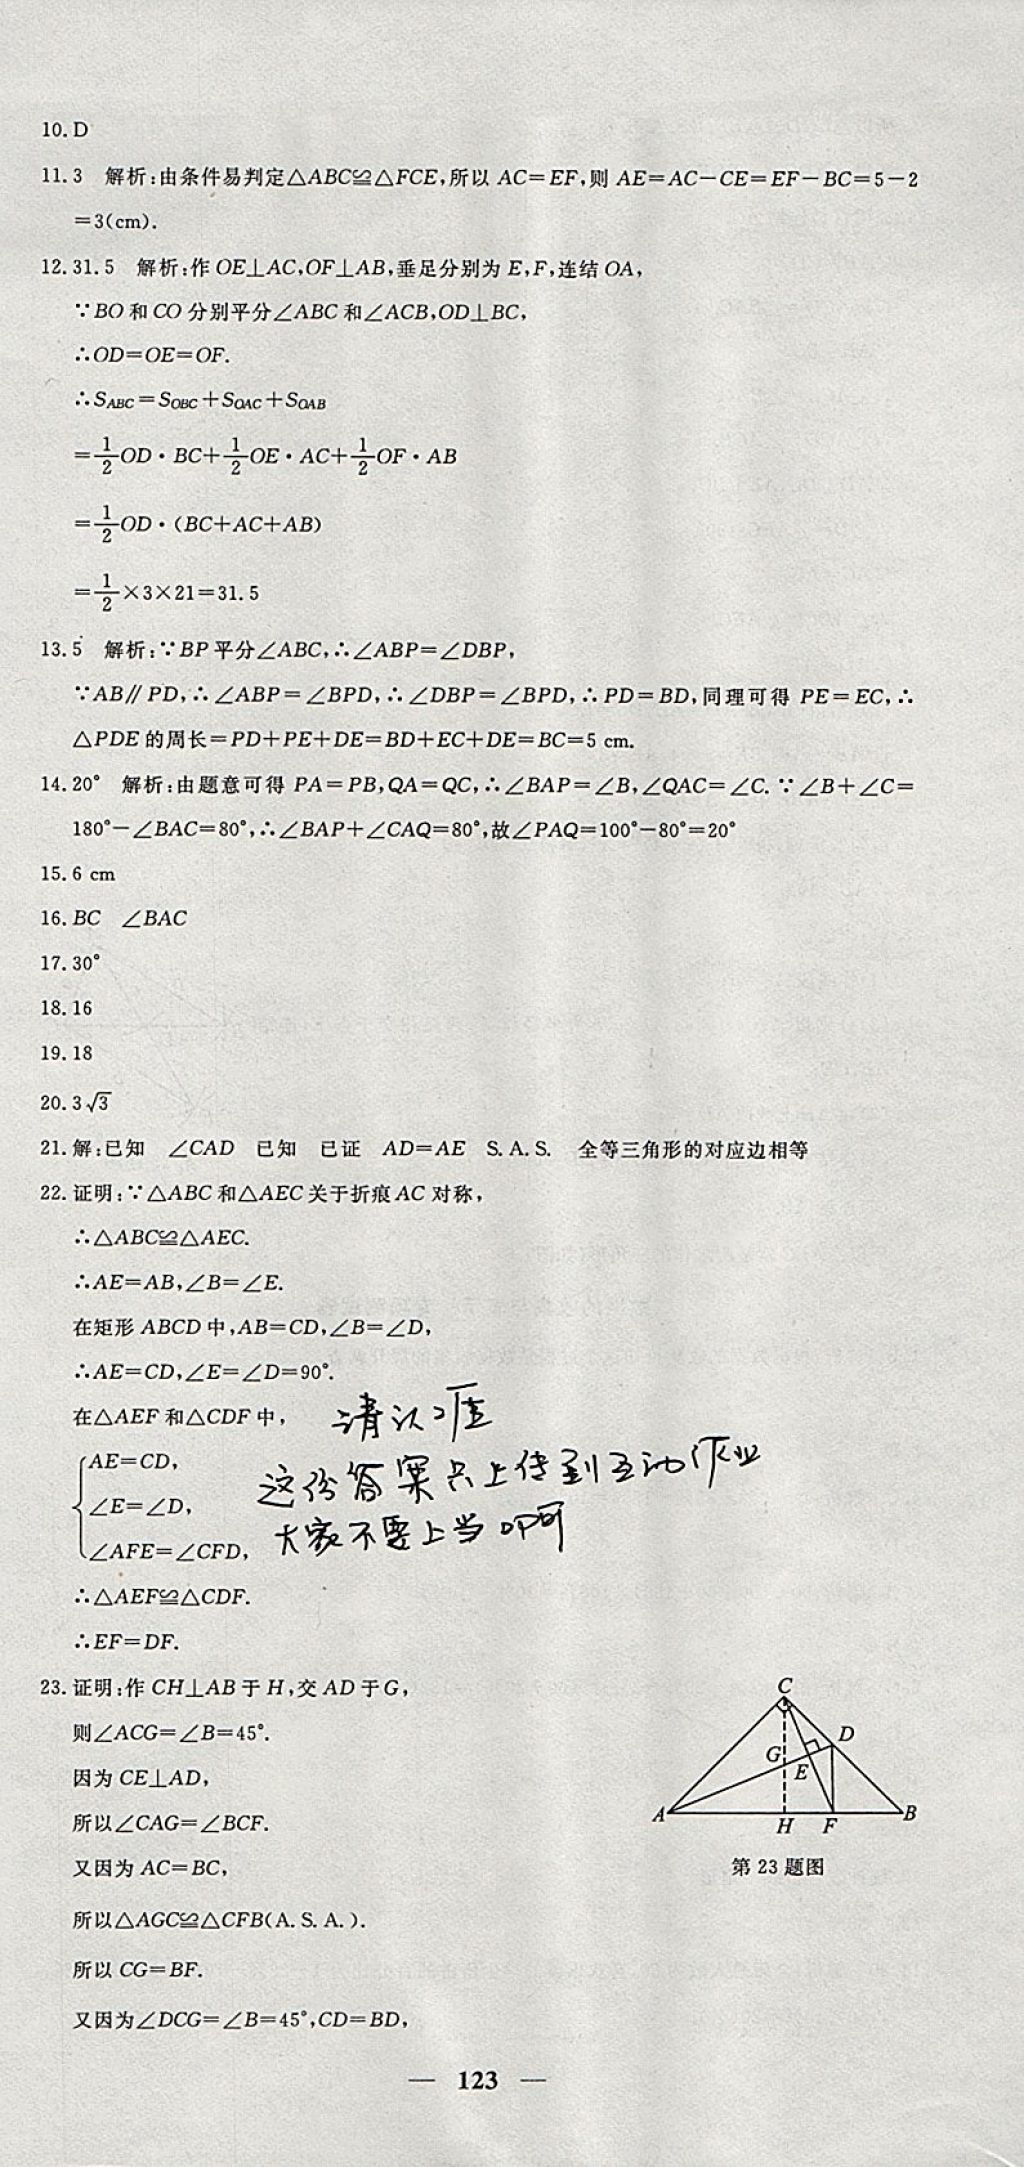 10. D
11. 3　解析:由条件易判定△ABC≌△FCE,所以 AC=EF,则 AE=AC-CE=EF-BC=5-2
=3(cm).
12. 31.5　解析:作 OE⊥AC,OF⊥AB,垂足分别为 E,F,连结 OA,
∵BO 和 CO 分别平分∠ABC 和∠ACB,OD⊥BC,
∴OD=OE=OF.
∴S_ABC=S_OBC+S_OAC+S_OAB
=1/2 OD·BC+1/2 OE·AC+1/2 OF·AB
=1/2 OD·(BC+AC+AB)
=1/2×3×21=31.5
13. 5　解析:∵BP 平分∠ABC,∴∠ABP=∠DBP,
∵AB∥PD,∴∠ABP=∠BPD,∴∠DBP=∠BPD,∴PD=BD,同理可得 PE=EC,∴
△PDE 的周长=PD+PE+DE=BD+EC+DE=BC=5 cm.
14. 20°　解析:由题意可得 PA=PB,QA=QC,∴∠BAP=∠B,∠QAC=∠C.∵∠B+∠C=
180°-∠BAC=80°,∴∠BAP+∠CAQ=80°,故∠PAQ=100°-80°=20°
15. 6 cm
16. BC　∠BAC
17. 30°
18. 16
19. 18
20. 3√3
21. 解:已知　∠CAD　已知　已证　AD=AE　S.A.S.　全等三角形的对应边相等
22. 证明:∵△ABC 和△AEC 关于折痕 AC 对称,
∴△ABC≌△AEC.
∴AE=AB,∠B=∠E.
在矩形 ABCD 中,AB=CD,∠B=∠D,
∴AE=CD,∠E=∠D=90°.
在△AEF 和△CDF 中,
请认准
AE=CD,
这份答案只上传到互动作业
∠E=∠D,
大家不要上当啊
∠AFE=∠CFD,
∴△AEF≌△CDF.
∴EF=DF.
23. 证明:作 CH⊥AB 于 H,交 AD 于 G,
则∠ACG=∠B=45°.
因为 CE⊥AD,
所以∠CAG=∠BCF.
又因为 AC=BC,
所以△AGC≌△CFB(A.S.A.).
所以 CG=BF.
又因为∠DCG=∠B=45°,CD=BD,
C
D
G
E
A
H
F
B
第 23 题图
— 123 —